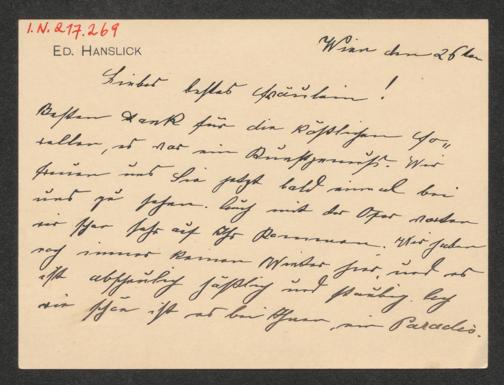 I.N. 217.269
ED. HANSLICK
Wien den 26ten
Liebes bestes Fräulein!
Besten Dank für die köstlichen Fo-
rellen, es war ein Kunstgenuß. Wir
freuen uns Sie jetzt bald einmal bei
uns zu sehen. Auch mit der Oper warten
wir schon sehr auf Ihr Kommen. Wir haben
noch immer keinen Winter hier, und es
ist abscheulich häßlich und staubig. Ach
wie schön ist es bei Ihnen, ein Paradies.